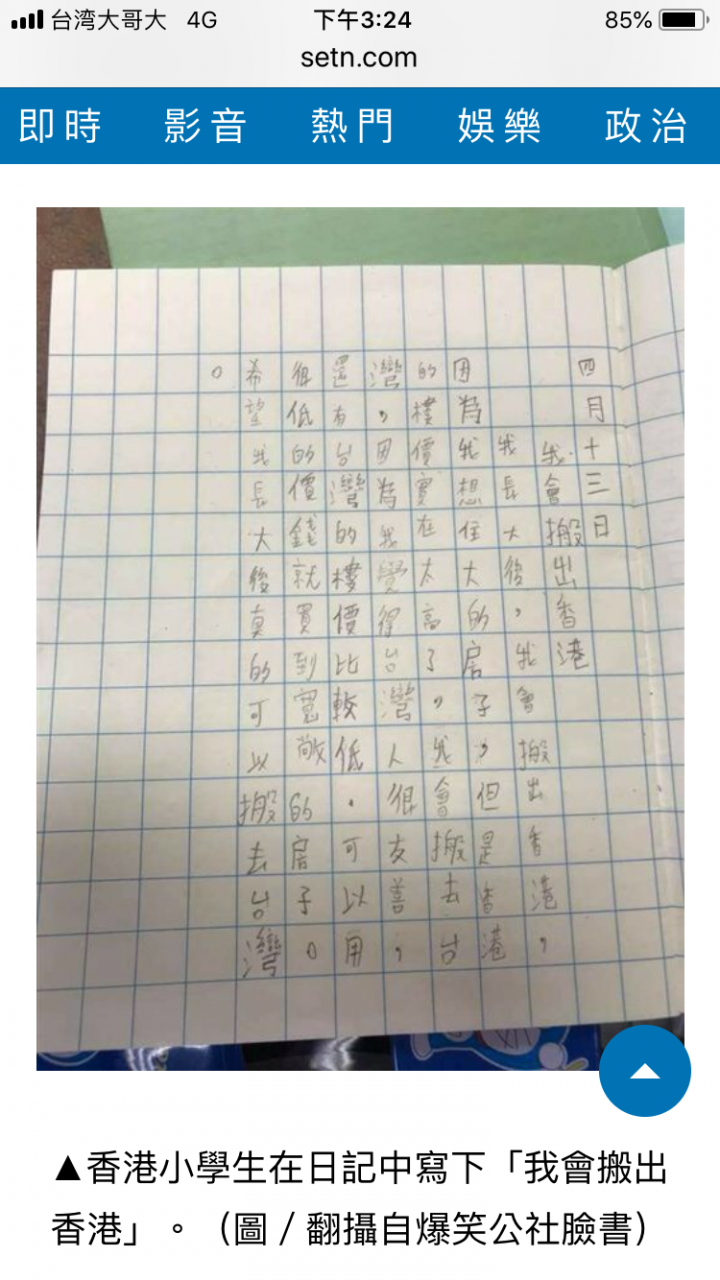 台湾大哥大 4G 下午3:24 85%
setn.com
即時 影音 熱門 娛樂 政治
四月十三日
我會搬出香港
我長大後，我會搬出香港，
因為我想住大的房子，但是香港
的樓價實在太高了。我會搬去台
灣，因為我覺得台灣人很友善，
還有台灣的樓價比較低．可以用
很低的價錢就買到寬敞的房子。
希望我長大後真的可以搬去台灣
。
▲香港小學生在日記中寫下「我會搬出
香港」。（圖／翻攝自爆笑公社臉書）